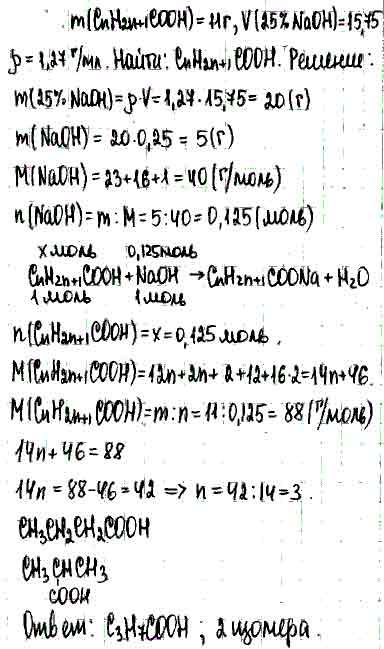 m(CnH2n+1COOH)=11г, V(25% NaOH)=15,75
ρ=1,27 г/мл. Найти: CnH2n+1COOH. Решение:
m(25% NaOH)=ρ·V=1,27·15,75=20(г)
m(NaOH)=20·0,25=5(г)
M(NaOH)=23+16+1=40(г/моль)
n(NaOH)=m:M=5:40=0,125(моль)
x моль 0,125моль
CnH2n+1COOH+NaOH→CnH2n+1COONa+H2O
1 моль 1 моль
n(CnH2n+1COOH)=x=0,125моль.
M(CnH2n+1COOH)=12n+2n+2+12+16·2=14n+46.
M(CnH2n+1COOH)=m:n=11:0,125=88(г/моль)
14n+46=88
14n=88-46=42 => n=42:14=3.
CH3CH2CH2COOH
CH3CHCH3
COOH
Ответ: C3H7COOH; 2 изомера.